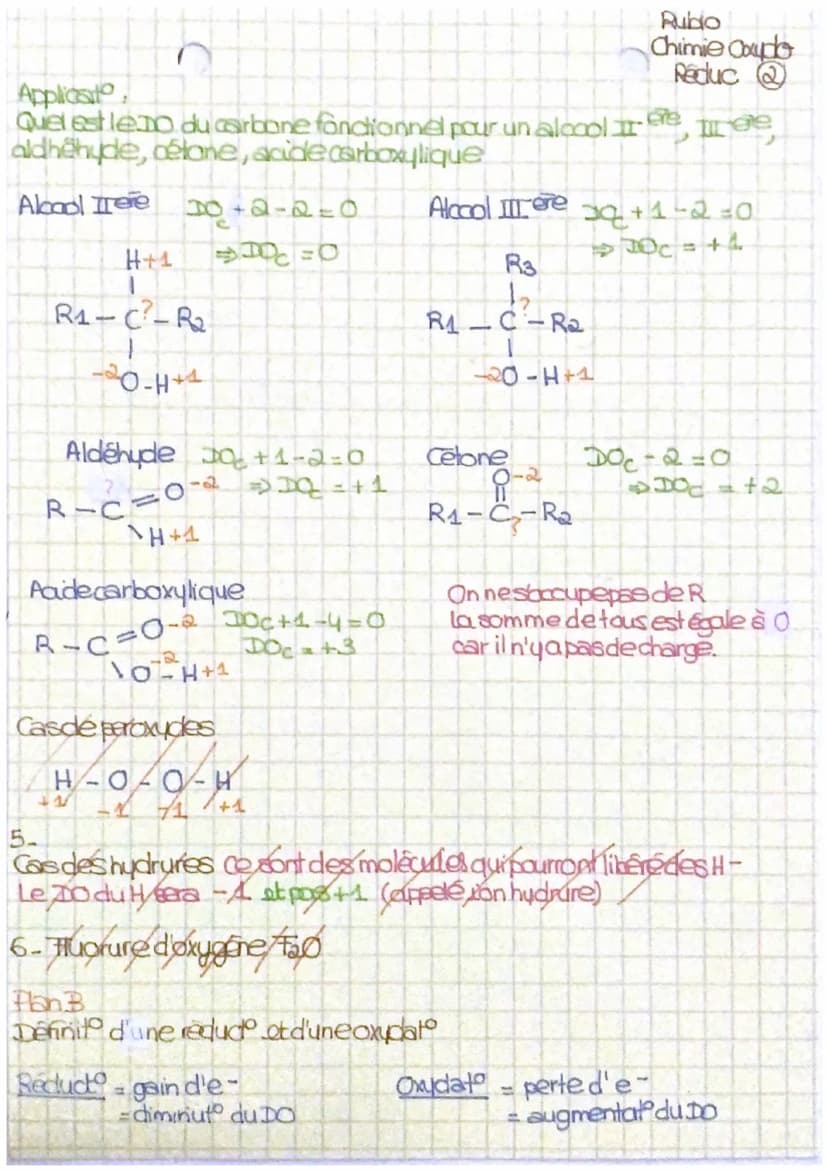 Rubio
Chimie Oxydo
Réduc ②
Applicat°:
Quel est le DO du carbone fonctionnel pour un alcool II ère, III ère,
aldhéhyde, cétone, acide carboxylique
Alcool II ère DOc + 2 - 2 = 0
⇒ DOc = 0
H+1
|
R1 - C? - R2
|
-2O-H+1
Alcool III ère DOc + 1 - 2 = 0
⇒ DOc = +1
R3
|
R1 - C? - R2
|
-2O - H+1
Aldéhyde DOc + 1 - 2 = 0
? =O-2 ⇒ DOc = +1
R - C
\H+1
Cétone DOc - 2 = 0
O-2 ⇒ DOc = +2
||
R1 - C? - R2
Acide carboxylique
=O-2 DOc + 1 - 4 = 0
R - C DOc = +3
\O-2 - H+1
On ne s'occupe pas de R
la somme de tous est égale à 0
car il n'y a pas de charge.
Cas de peroxydes
H - O - O - H
+1 -1 -1 +1
5-
Cas des hydrures ce sont des molécules qui pourront libéré des H-
Le DO du H sera -1 et pas +1 (appelé ion hydrure)
6- Fluorure d'oxygène F2O
Plan B
Définit° d'une réduct° et d'une oxydat°
Réduct° = gain d'e-
= diminiut° du DO
Oxydat° = perte d'e-
= augmentat° du DO